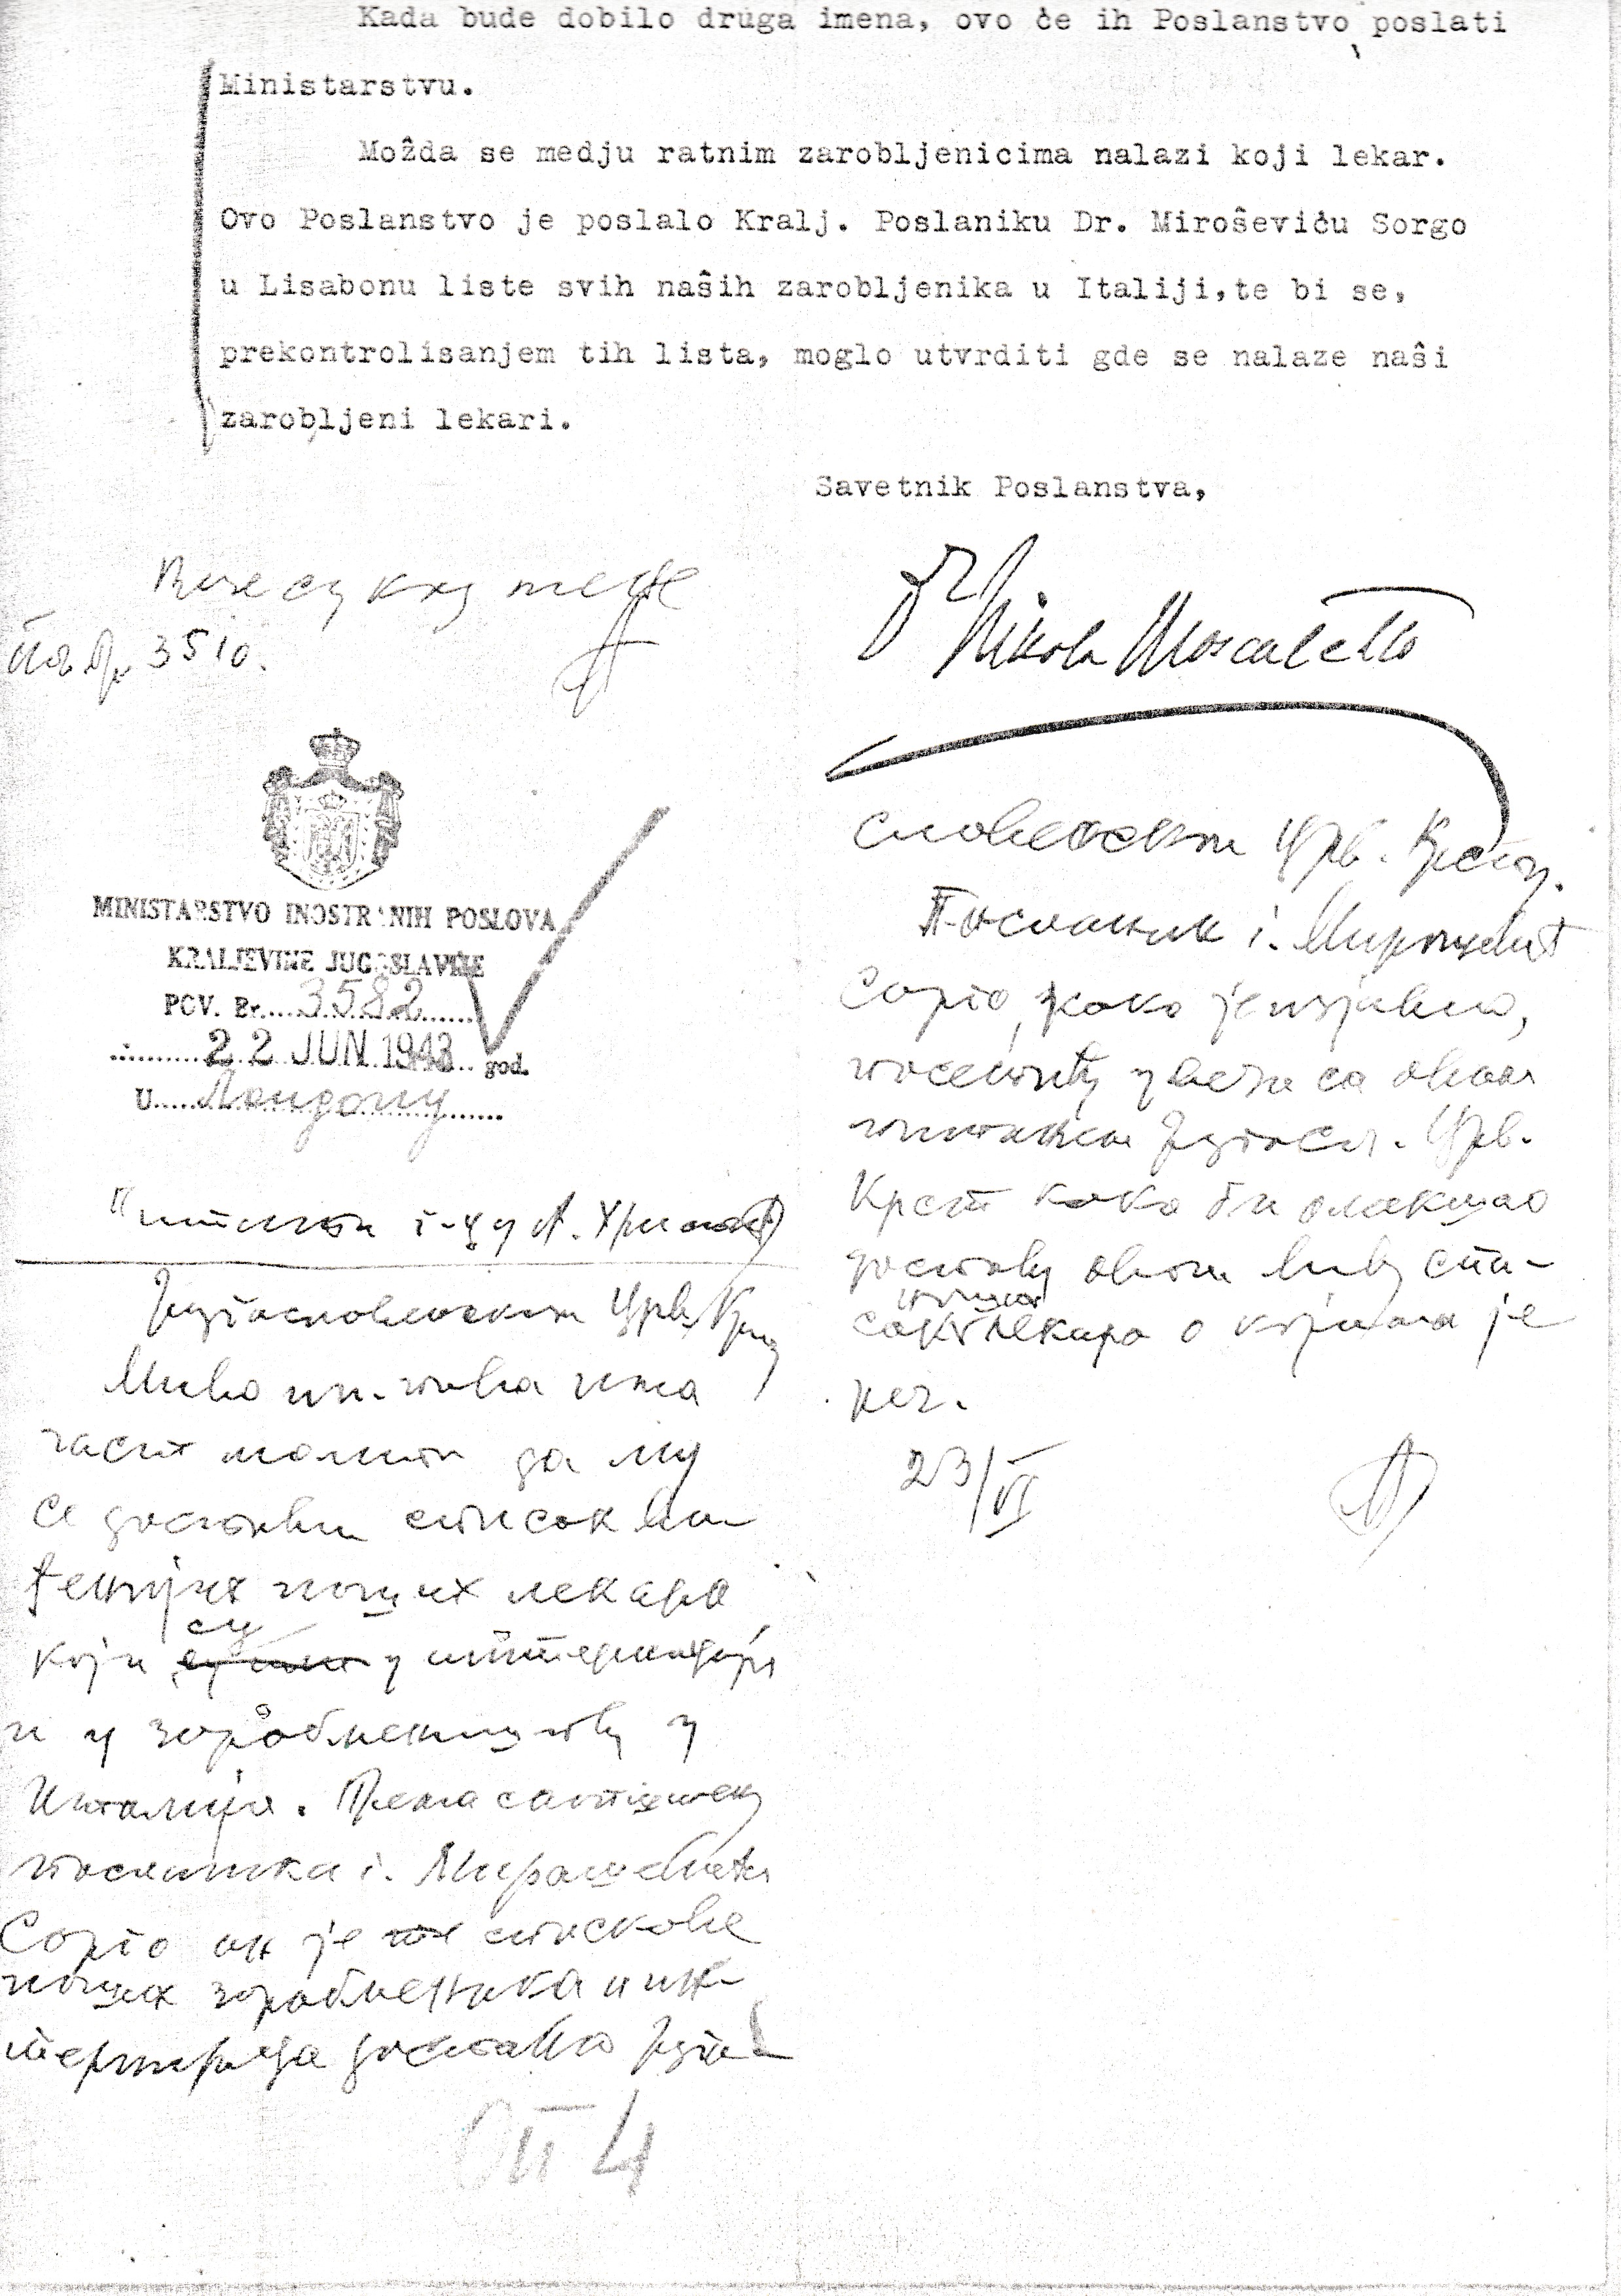 Kada bude dobilo druga imena, ovo će ih Poslanstvo poslati
Ministarstvu.
Možda se medju ratnim zarobljenicima nalazi koji lekar.
Ovo Poslanstvo je poslalo Kralj. Poslaniku Dr. Miroševiću Sorgo
u Lisabonu liste svih naših zarobljenika u Italiji,te bi se,
prekontrolisanjem tih lista, moglo utvrditi gde se nalaze naši
zarobljeni lekari.
Savetnik Poslanstva,
Dr Nikola Moscatello
Везе су код мене
Пов. Бр. 3510.
MINISTARSTVO INOSTRANIH POSLOVA
KRALJEVINE JUGOSLAVIJE
POV. Br. 3582
22 JUN 1943 god.
U Лондону
Југословенском Црв. Крсту
Мин. ин. посла има
част молити да му
се достави списак
наших лекара
који су у
и у заробљеништву у
Италији. Према саопштењу
посланика г. Мирошевића
Сорго он је спискове
наших заробљеника и ин-
тернираца доставио Југо-
словенском Црв. Крсту.
Посланик г. Мирошевић
Сорго, како је изјавио,
посетиће у вези са овим
питањем Југосл. Црв.
Крст како би олакшао
доставу овом Мин. спи-
сак лекара о којима је
реч.
23/VI
ОП 4